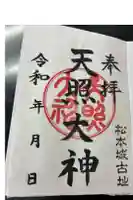 奉拝
天照大神
松本城古地
令和 年 月 日